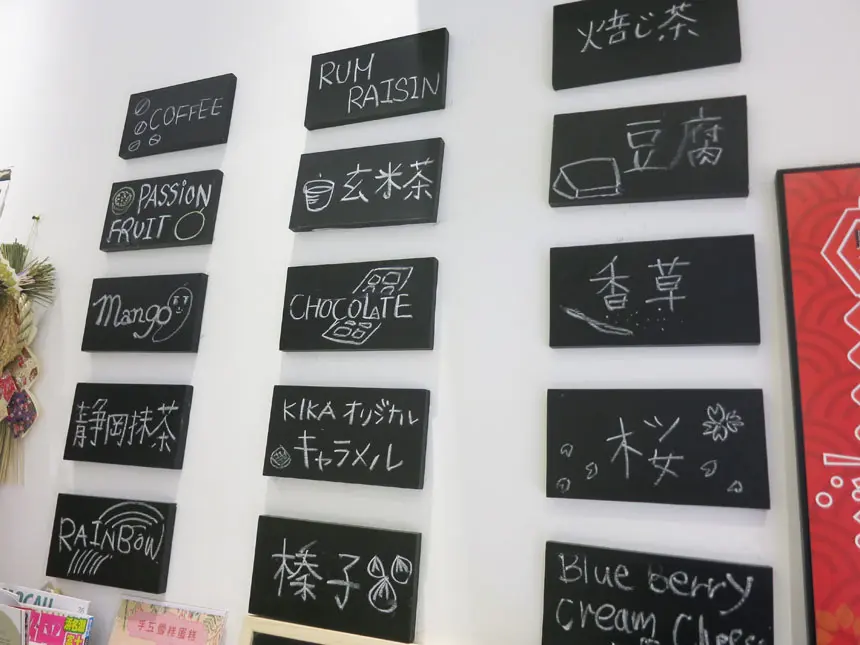 COFFEE
PASSION
FRUIT
Mango
静岡抹茶
RAINBOW
RUM
RAISIN
玄米茶
CHOCOLATE
KIKA オリジナル
キャラメル
榛子
焙じ茶
豆腐
香草
桜
Blue Berry
Cream Cheese
手工雪糕蛋糕